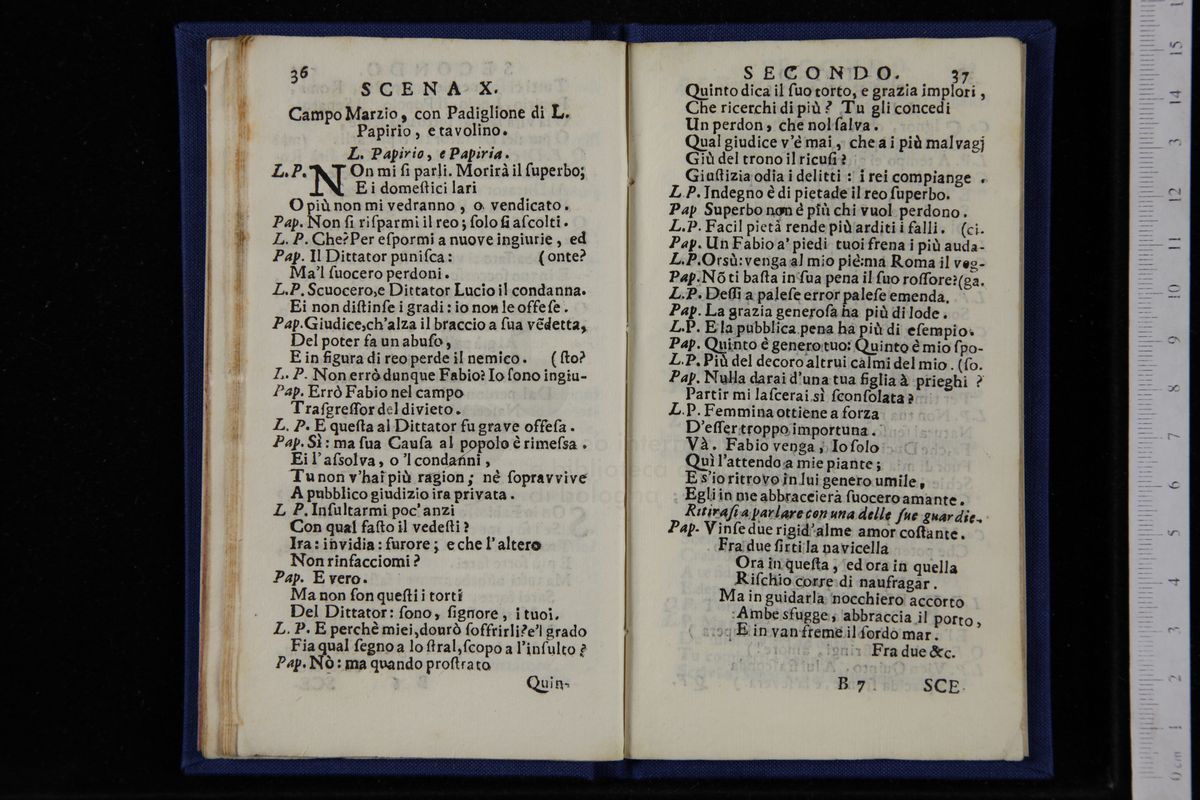 36
SCENA X.
Campo Marzio, con Padiglione di L.
Papirio, e tavolino.
L. Papirio, e Papiria.
L.P. NOn mi ſi parli. Morirà il ſuperbo;
E i domeſtici lari
O più non mi vedranno, o vendicato.
Pap. Non ſi riſparmi il reo; ſolo ſi aſcolti.
L. P. Che? Per eſpormi a nuove ingiurie, ed
Pap. Il Dittator puniſca: (onte?
Ma'l ſuocero perdoni.
L.P. Scuocero,e Dittator Lucio il condanna.
Ei non diſtinſe i gradi: io non le offeſe.
Pap.Giudice,ch'alza il braccio a ſua vẽdetta,
Del poter fa un abuſo,
E in figura di reo perde il nemico. (ſto?
L. P. Non errò dunque Fabio? Io ſono ingiu-
Pap. Errò Fabio nel campo
Traſgreſſor del divieto.
L. P. E queſta al Dittator fu grave offeſa.
Pap. Sì: ma ſua Cauſa al popolo è rimeſſa.
Ei l'aſſolva, o 'l condanni,
Tu non v'hai più ragion; nè ſopravvive
A pubblico giudizio ira privata.
L P. Inſultarmi poc'anzi
Con qual faſto il vedeſti?
Ira: invidia: furore; e che l'altero
Non rinfacciomi?
Pap. E vero.
Ma non ſon queſti i torti
Del Dittator: ſono, ſignore, i tuoi.
L. P. E perchè miei,dourò ſoffrirli?e'l grado
Fia qual ſegno a lo ſtral,ſcopo a l'inſulto?
Pap. Nò: ma quando proſtrato
Quin-
SECONDO. 37
Quinto dica il ſuo torto, e grazia implori,
Che ricerchi di più? Tu gli concedi
Un perdon, che nol ſalva.
Qual giudice v'è mai, che a i più malvagj
Giù del trono il ricuſi?
Giuſtizia odia i delitti: i rei compiange.
L P. Indegno è di pietade il reo ſuperbo.
Pap Superbo non è più chi vuol perdono.
L.P. Facil pietà rende più arditi i falli. (ci.
Pap. Un Fabio a' piedi tuoi frena i più auda-
L.P.Orsù: venga al mio piè:ma Roma il veg-
Pap.Nõ ti baſta in ſua pena il ſuo roſſore?(ga.
L.P. Deſſi a paleſe error paleſe emenda.
Pap. La grazia generoſa ha più di lode.
L.P. E la pubblica pena ha più di eſempio.
Pap. Quinto è genero tuo: Quinto è mio ſpo-
L.P. Più del decoro altrui calmi del mio. (ſo.
Pap. Nulla darai d'una tua figlia à prieghi?
Partir mi laſcerai sì ſconſolata?
L.P. Femmina ottiene a forza
D'eſſer troppo importuna.
Và. Fabio venga, Io ſolo
Quì l'attendo a mie piante;
E s'io ritrovo in lui genero umile,
Egli in me abbraccierà ſuocero amante.
Ritiraſi a parlare con una delle ſue guardie.
Pap. Vinſe due rigid'alme amor coſtante.
Fra due ſirti la navicella
Ora in queſta, ed ora in quella
Riſchio corre di naufragar.
Ma in guidarla nocchiero accorto
Ambe sfugge, abbraccia il porto,
E in van freme il ſordo mar.
Fra due &c.
B 7 SCE